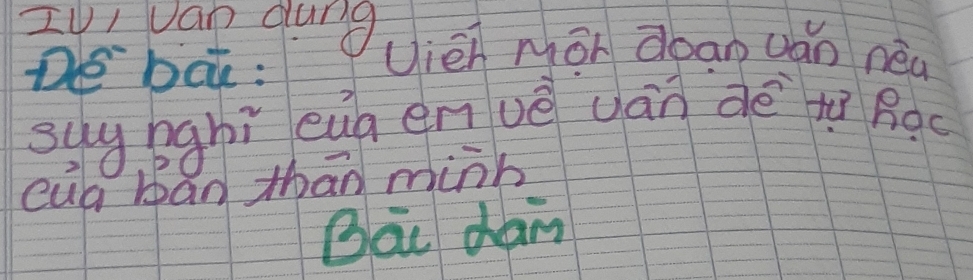 IV, Vận dụng
Đề bài: Viết một đoạn văn nêu
suy nghĩ của em về vấn đề tự học
của bản thân mình
Bài làm